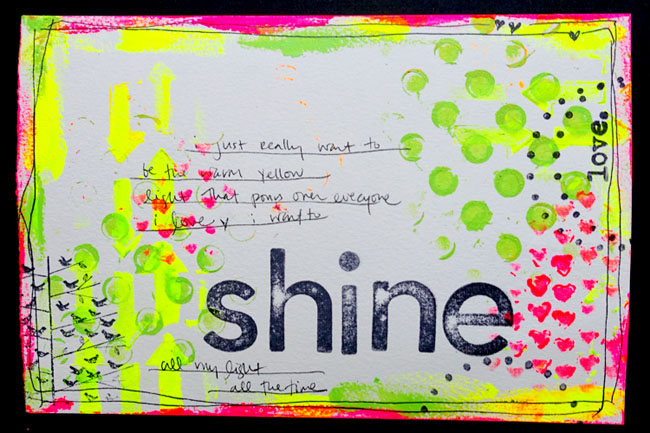 i just really want to
be the warm yellow
light that pours over everyone
i love i want to
shine
all my light
all the time
love.